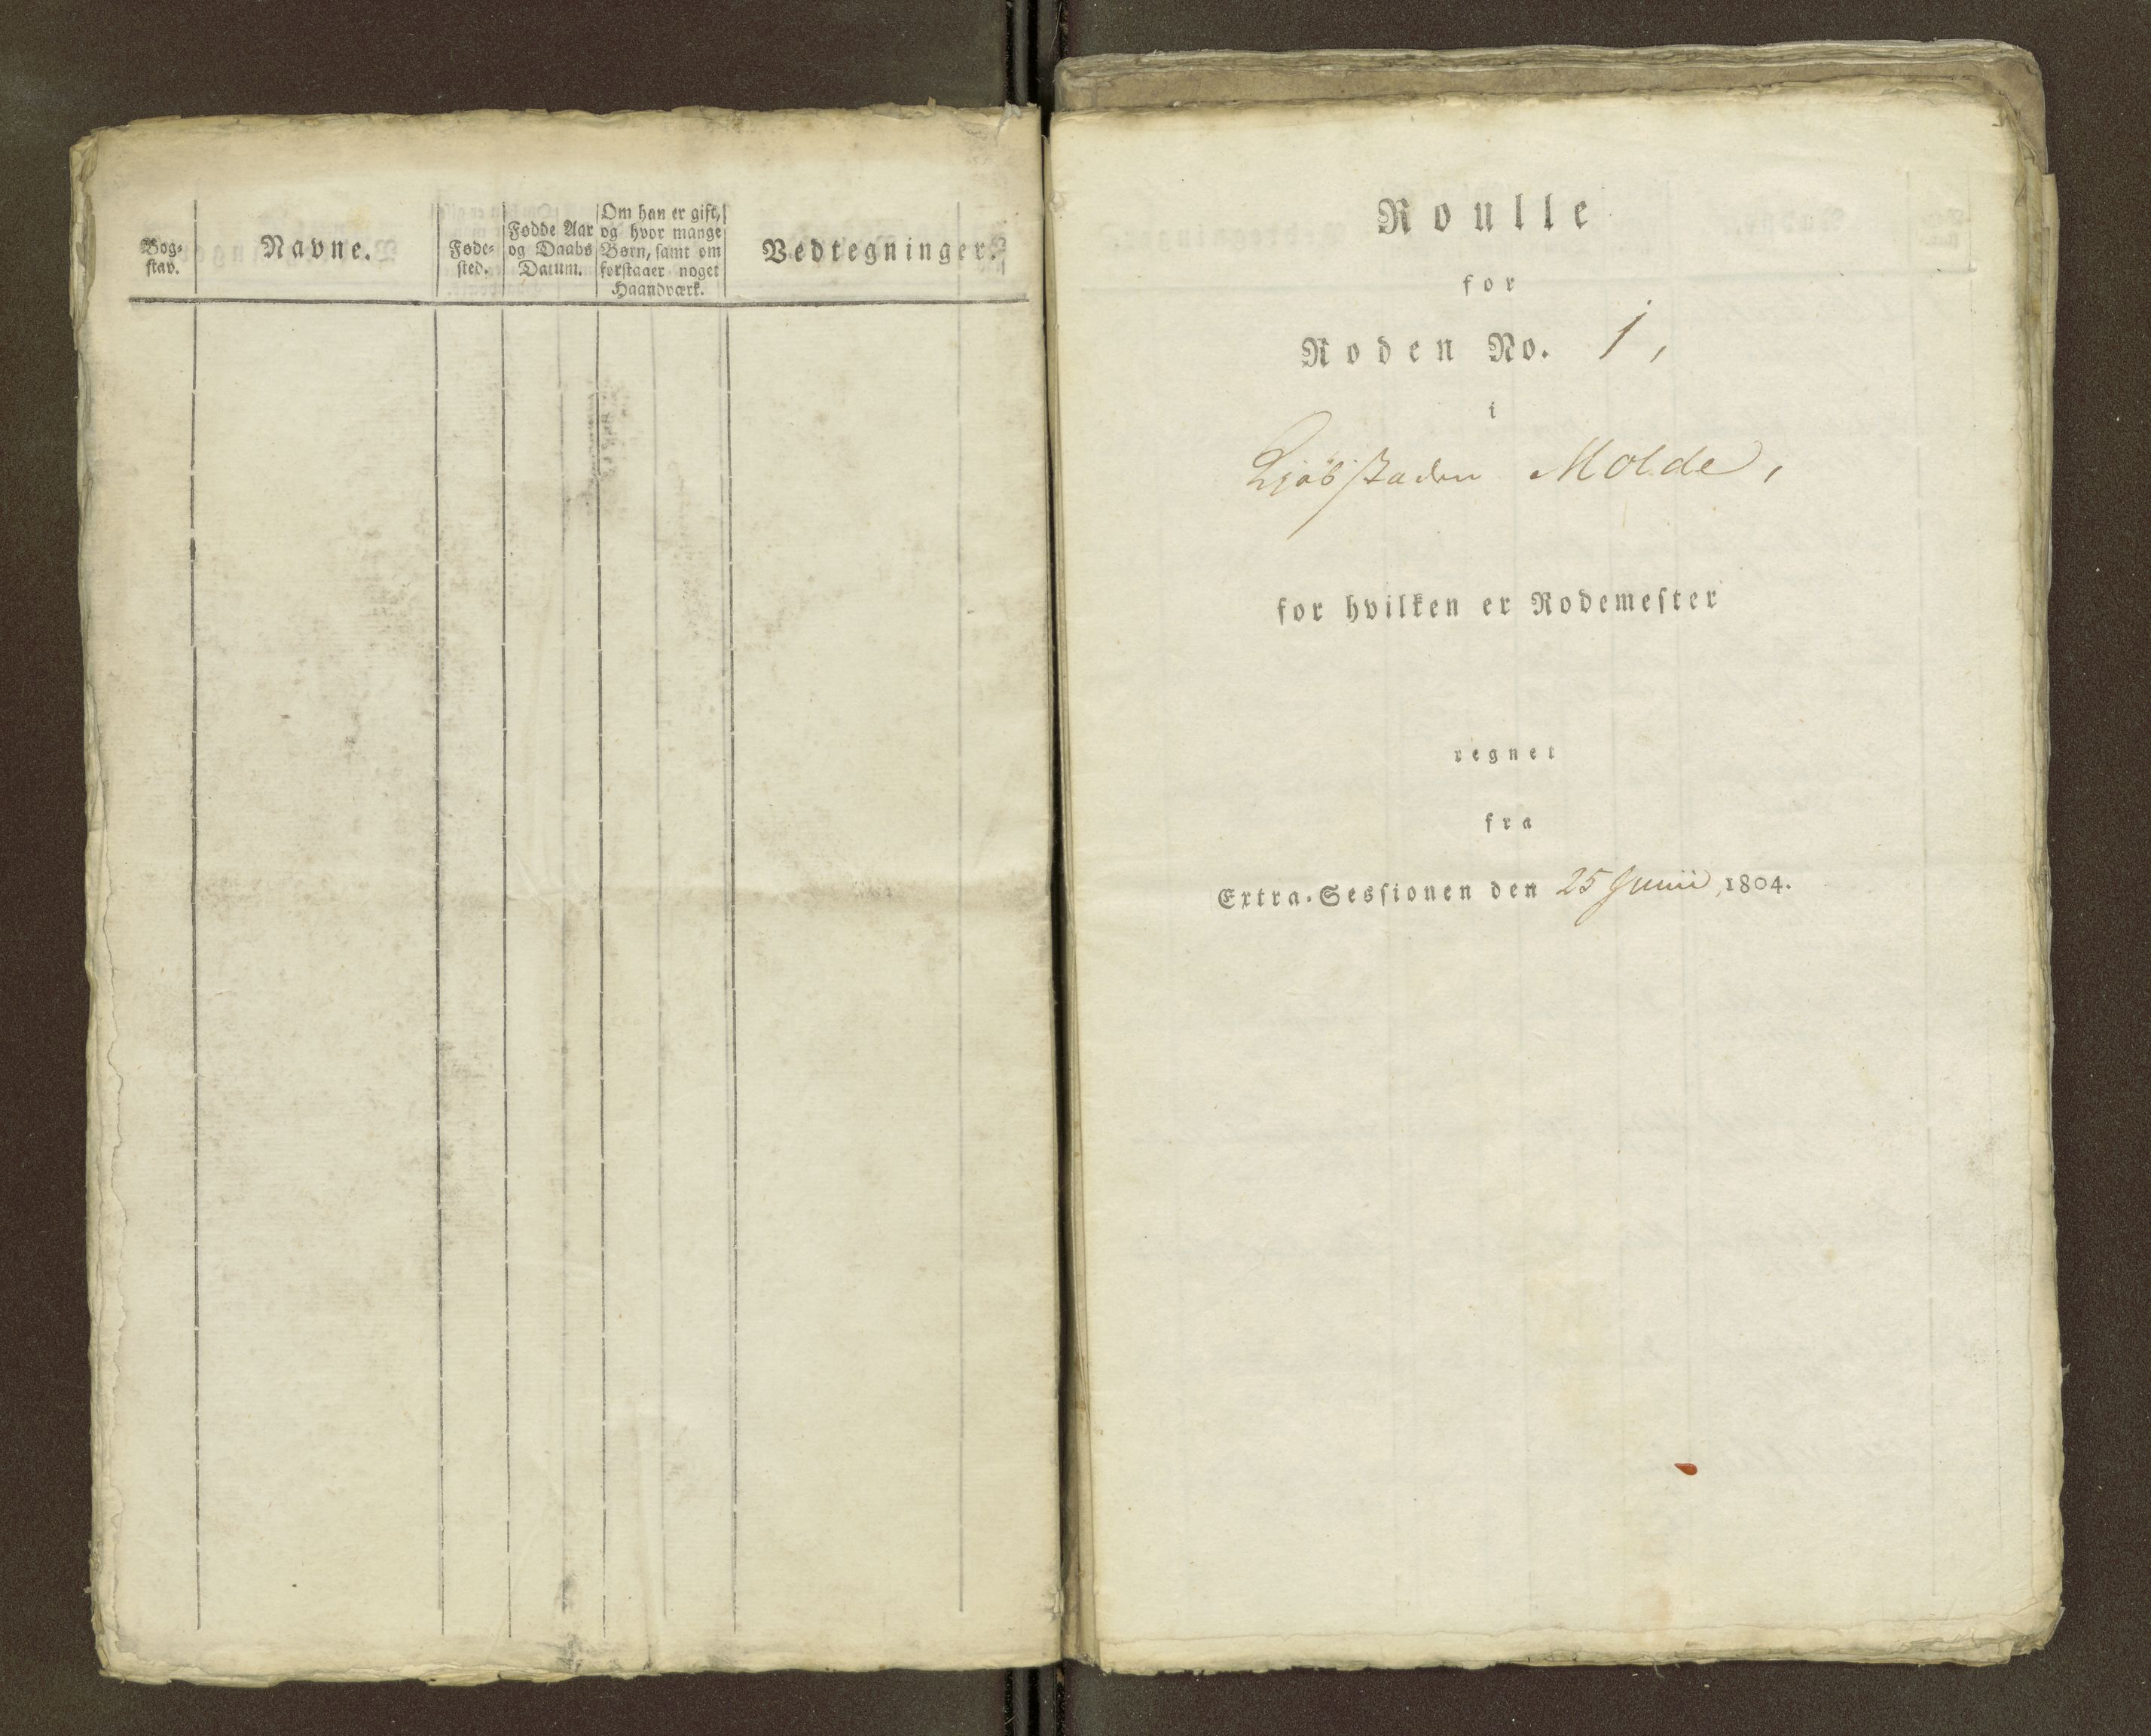 Bog-
stav.
Navne.
Føde-
sted.
Fødde Aar
og Daabs
Datum.
Om han er gift,
og hvor mange
Børn, samt om
forstaaer noget
Haandværk.
Vedtegninger.
Roulle
for
Roden No. 1,
i
Kjøbstaden Molde,
for hvilken er Rodemester
regnet
fra
Extra-Sessionen den 25 Junii 1804.